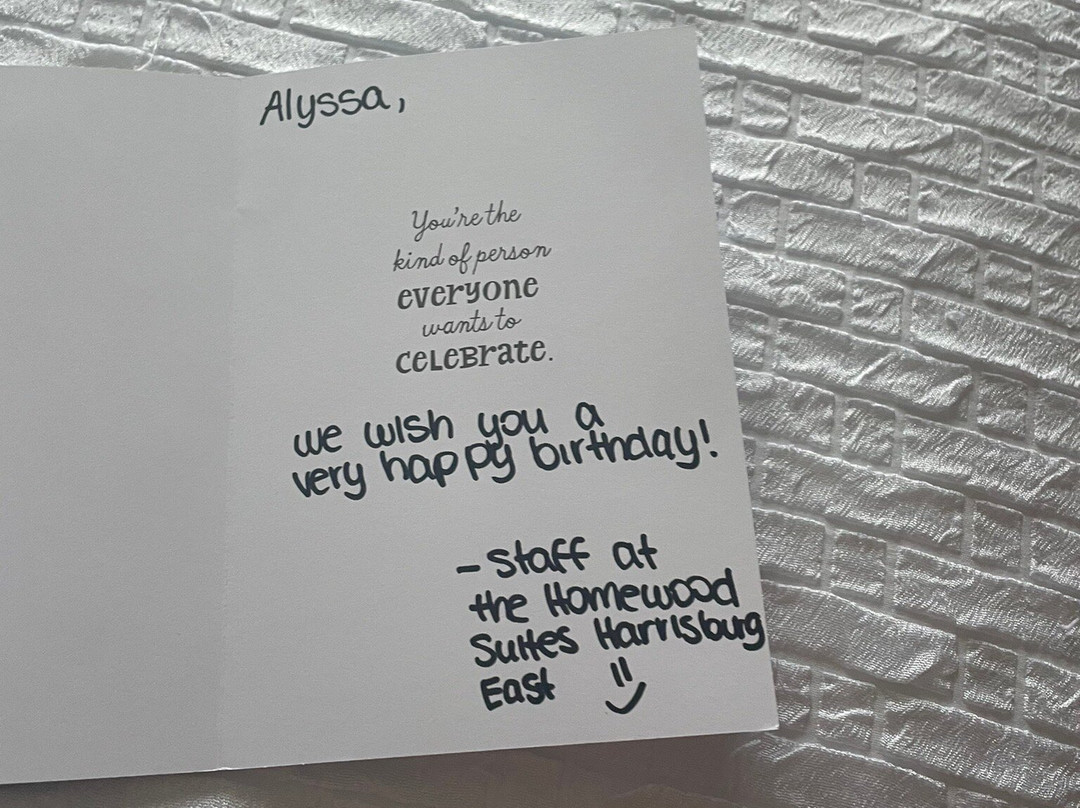 Alyssa,
You're the
kind of person
everyone
wants to
CELEBrate.
we wish you a
very happy birthday!
- Staff at
the Homewood
Suites Harrisburg
East